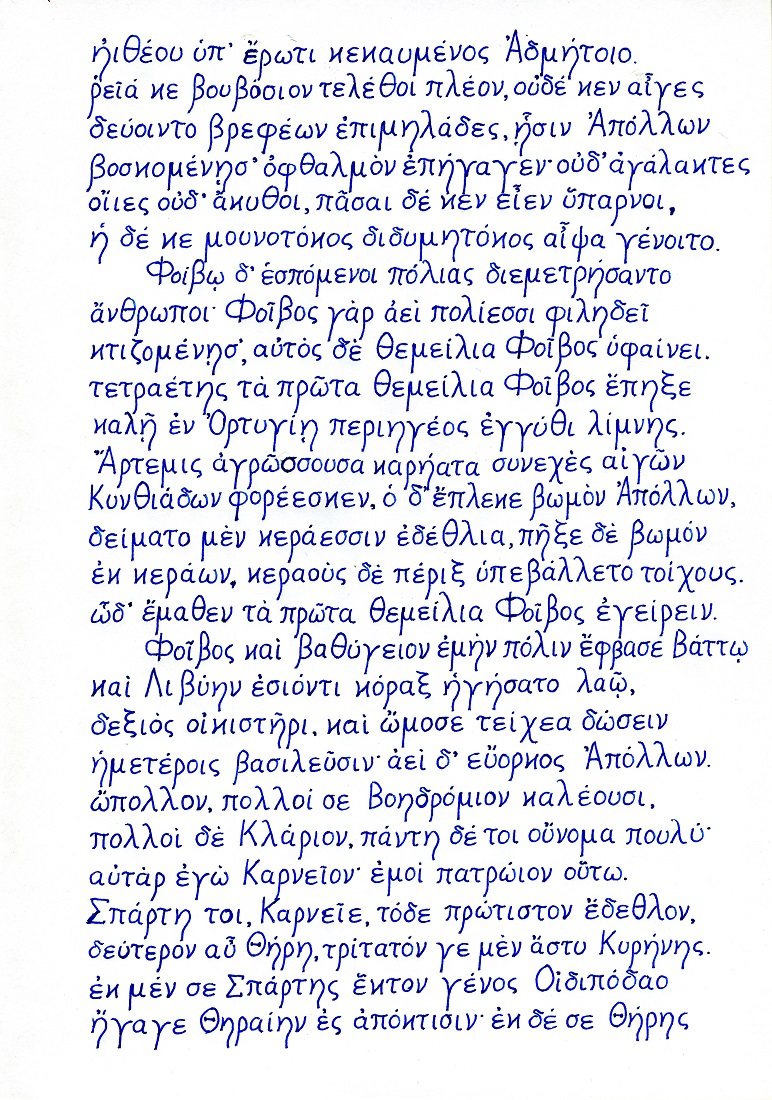 ἠιθέου ὑπ' ἔρωτι κεκαυμένος Ἀδμήτοιο.
ῥεῖά κε βουβόσιον τελέθοι πλέον, οὐδέ κεν αἶγες
δεύοιντο βρεφέων ἐπιμηλάδες, ᾗσιν Ἀπόλλων
βοσκομένῃσ' ὀφθαλμὸν ἐπήγαγεν· οὐδ' ἀγάλακτες
οἴιες οὐδ' ἄκυθοι, πᾶσαι δέ κεν εἶεν ὕπαρνοι,
ἡ δέ κε μουνοτόκος διδυμητόκος αἶψα γένοιτο.
Φοίβῳ δ' ἑσπόμενοι πόλιας διεμετρήσαντο
ἄνθρωποι· Φοῖβος γὰρ ἀεὶ πολίεσσι φιληδεῖ
κτιζομένῃσ', αὐτὸς δὲ θεμείλια Φοῖβος ὑφαίνει.
τετραέτης τὰ πρῶτα θεμείλια Φοῖβος ἔπηξε
καλῇ ἐν Ὀρτυγίῃ περιηγέος ἐγγύθι λίμνης.
Ἄρτεμις ἀγρώσσουσα καρήατα συνεχὲς αἰγῶν
Κυνθιάδων φορέεσκεν, ὁ δ' ἔπλεκε βωμὸν Ἀπόλλων,
δείματο μὲν κεράεσσιν ἐδέθλια, πῆξε δὲ βωμόν
ἐκ κεράων, κεραοὺς δὲ πέριξ ὑπεβάλλετο τοίχους.
ὧδ' ἔμαθεν τὰ πρῶτα θεμείλια Φοῖβος ἐγείρειν.
Φοῖβος καὶ βαθύγειον ἐμὴν πόλιν ἔφρασε Βάττῳ
καὶ Λιβύην ἐσιόντι κόραξ ἡγήσατο λαῷ,
δεξιὸς οἰκιστῆρι, καὶ ὤμοσε τείχεα δώσειν
ἡμετέροις βασιλεῦσιν· ἀεὶ δ' εὔορκος Ἀπόλλων.
ὤπολλον, πολλοί σε Βοηδρόμιον καλέουσι,
πολλοὶ δὲ Κλάριον, πάντη δέ τοι οὔνομα πουλύ·
αὐτὰρ ἐγὼ Καρνεῖον· ἐμοὶ πατρώιον οὕτω.
Σπάρτη τοι, Καρνεῖε, τόδε πρώτιστον ἔδεθλον,
δεύτερον αὖ Θήρη, τρίτατόν γε μὲν ἄστυ Κυρήνης.
ἐκ μέν σε Σπάρτης ἕκτον γένος Οἰδιπόδαο
ἤγαγε Θηραίην ἐς ἀπόκτισιν· ἐκ δέ σε Θήρης